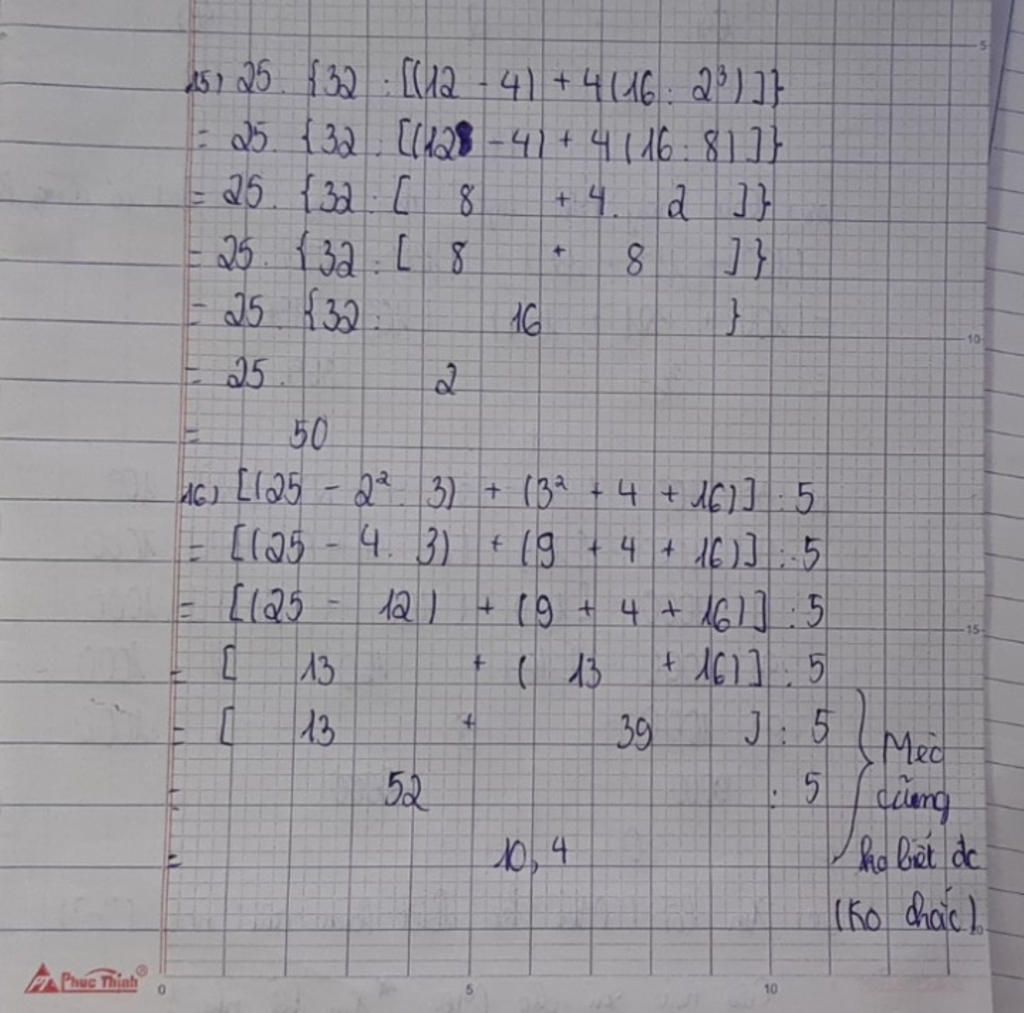 15) 25. {32 : [(12 - 4) + 4(16 : 2³)]}
= 25. {32 : [(128 - 4) + 4(16 : 8)]}
= 25. {32 : [ 8 + 4. 2 ]}
= 25. {32 : [ 8 + 8 ]}
= 25. {32 : 16 }
= 25. 2
= 50
16) [(25 - 2². 3) + (3² + 4 + 16)] : 5
= [(25 - 4. 3) + (9 + 4 + 16)] : 5
= [(25 - 12) + (9 + 4 + 16)] : 5
= [ 13 + ( 13 + 16)] : 5
= [ 13 + 39 ] : 5
= 52 : 5
= 10,4
Mẹc
cũng
ko biết đc
(Ko chắc).
Phuc Thinh®
0 5 10
5
10
15